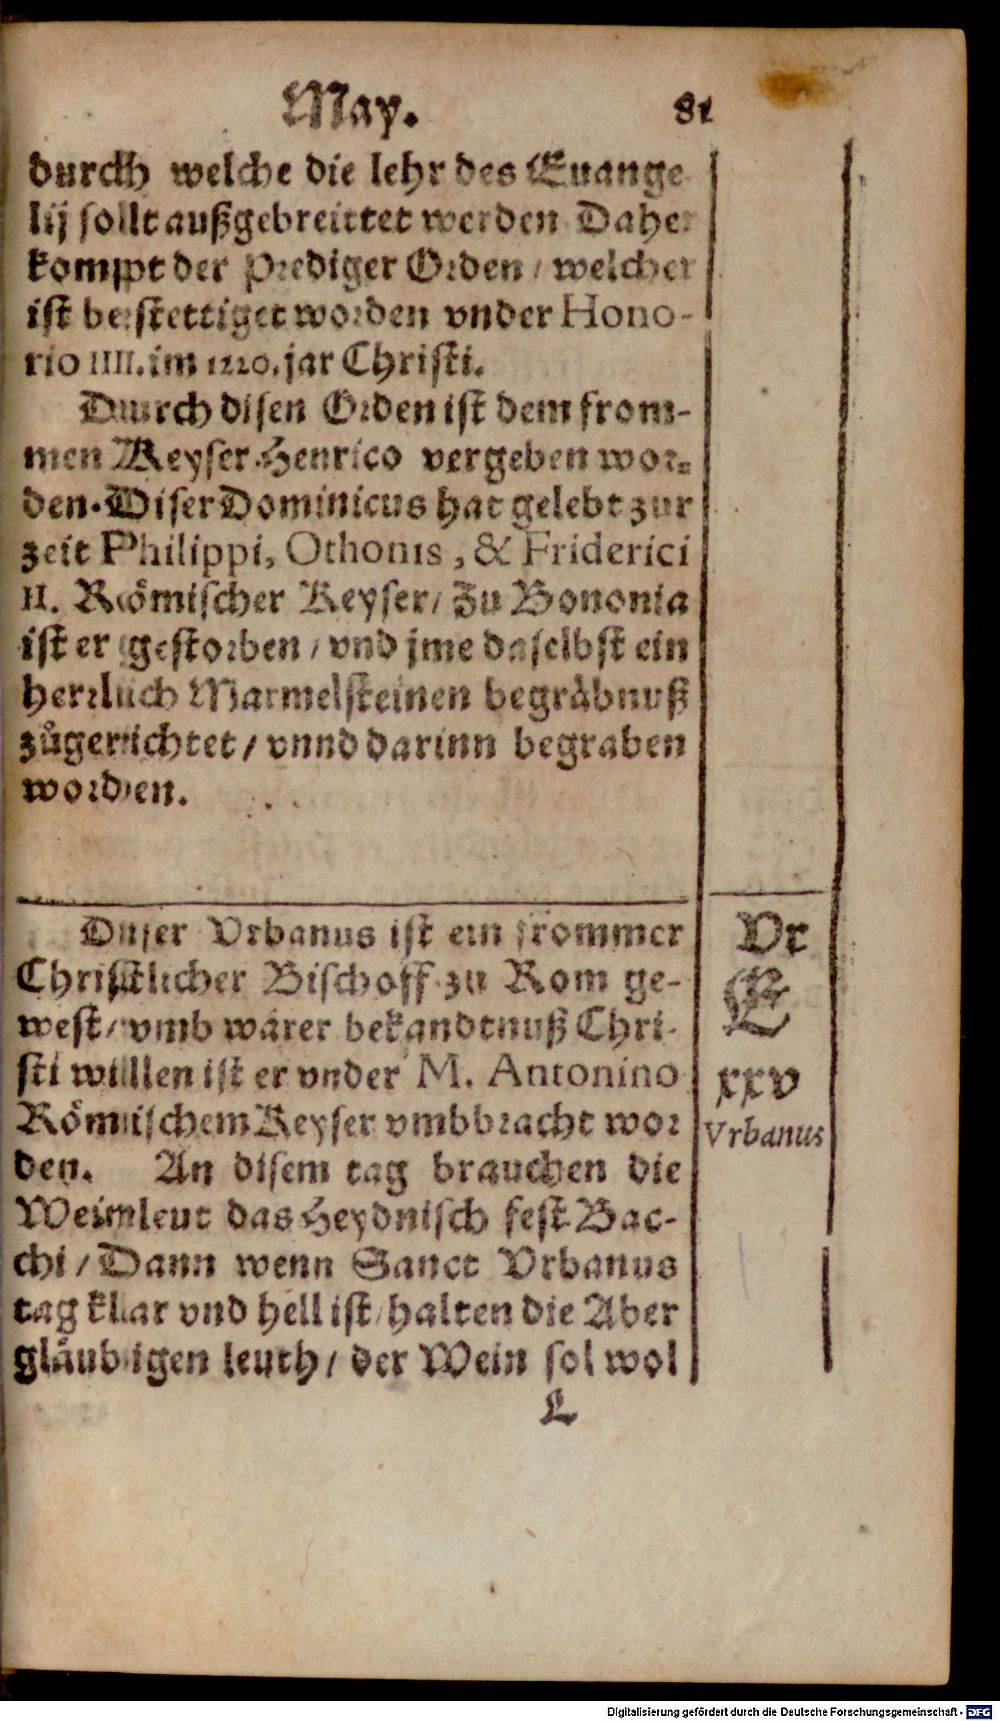 May. 81
durch welche die lehr des Euange
lij sollt außgebreittet werden Daher
kompt der Prediger Orden / welcher
ist bestettiget worden vnder Hono-
rio IIII. im 1220. jar Christi.
Durch disen Orden ist dem from-
men Keyser Henrico vergeben wor-
den. Diser Dominicus hat gelebt zur
zeit Philippi, Othonis, & Friderici
II. Römischer Keyser / Zu Bononia
ist er gestorben / vnd jme daselbst ein
herrlich Marmelsteinen begräbnuß
zůgerichtet / vnnd darinn begraben
worden.
Diser Vrbanus ist ein frommer
Christlicher Bischoff zu Rom ge-
west / vmb warer bekandtnuß Chri-
sti willen ist er vnder M. Antonino
Römischem Keyser vmbbracht wor
den. An disem tag brauchen die
Weinleut das Heydnisch fest Bac-
chi / Dann wenn Sanct Vrbanus
tag klar vnd hell ist / halten die Aber
gläubigen leuth / der Wein sol wol
L
Vr
E
xxv
Vrbanus
Digitalisierung gefördert durch die Deutsche Forschungsgemeinschaft - DFG